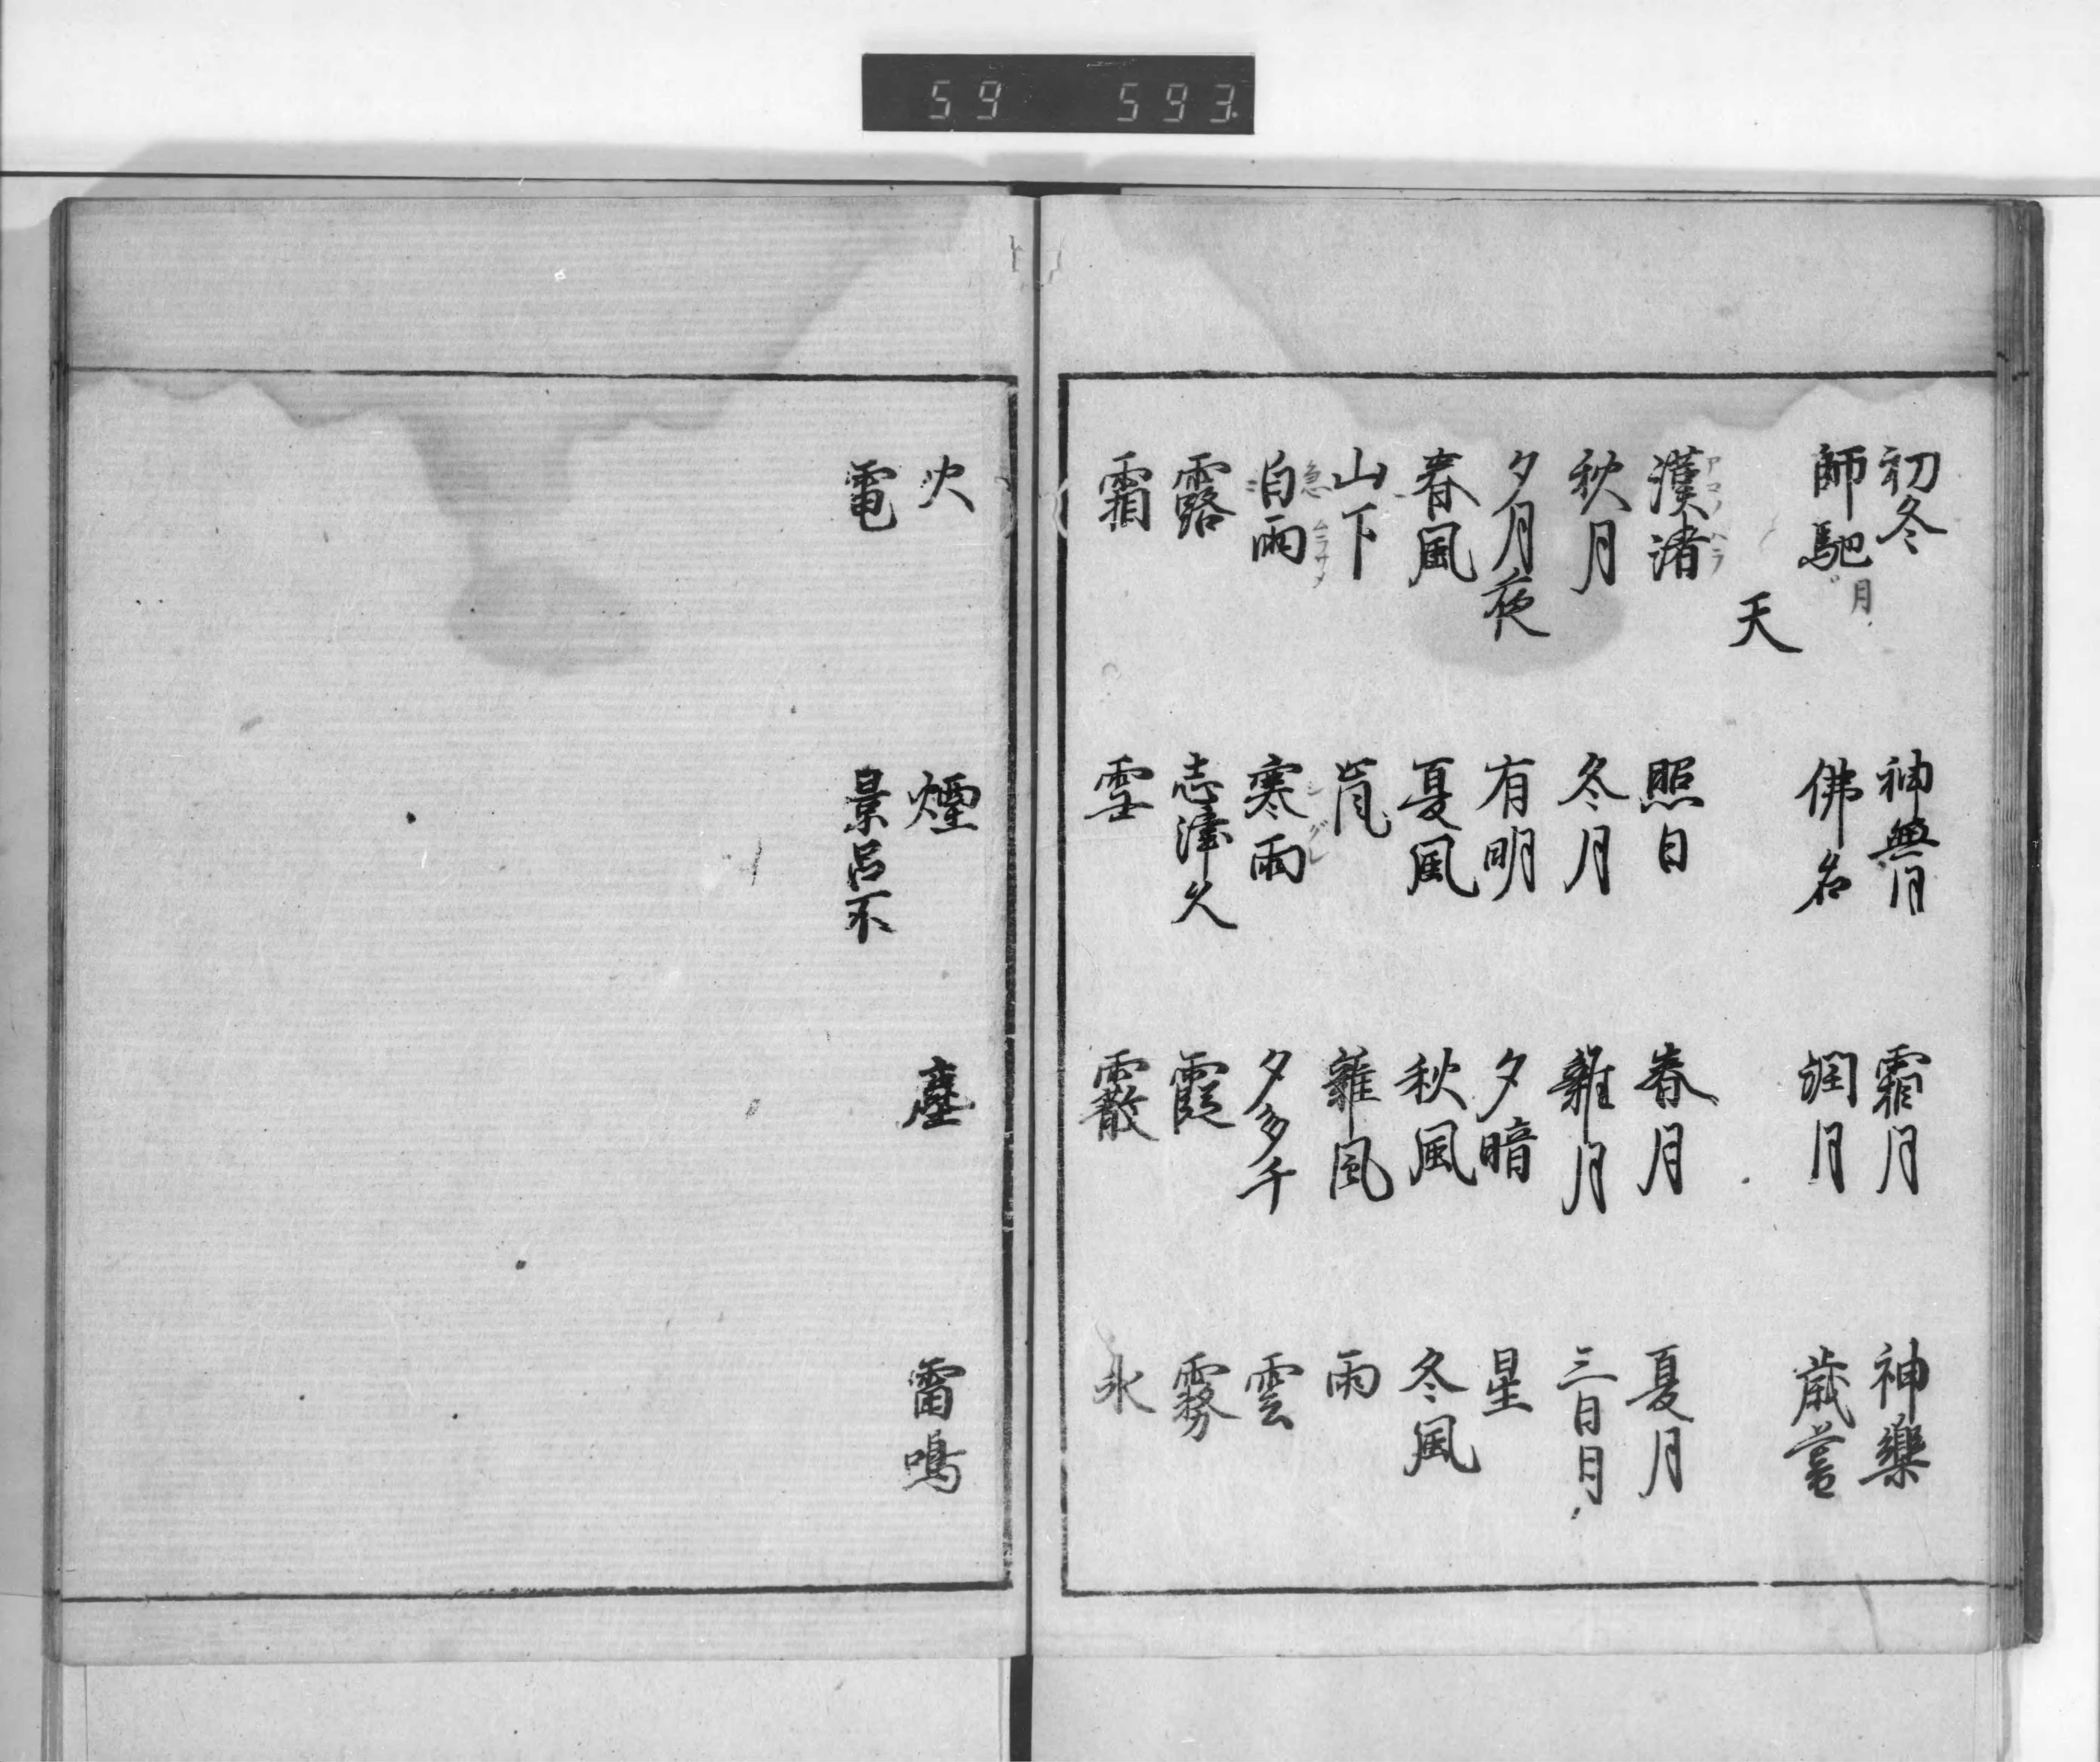 59 593
初冬 神無月 霜月 神樂
師馳月 佛名 潤月 歳暮
天
漢渚 照日 春月 夏月
秋月 冬月 雜月 三日月
夕月夜 有明 夕暗 星
春風 夏風 秋風 冬風
山下 嵐 雜風 雨
白雨 急 ムラサメ 寒雨 シグレ 夕多千 雲
露 志津久 霞 霧
霜 雪 霰 氷
火 煙 塵 雷鳴
電 景呂不